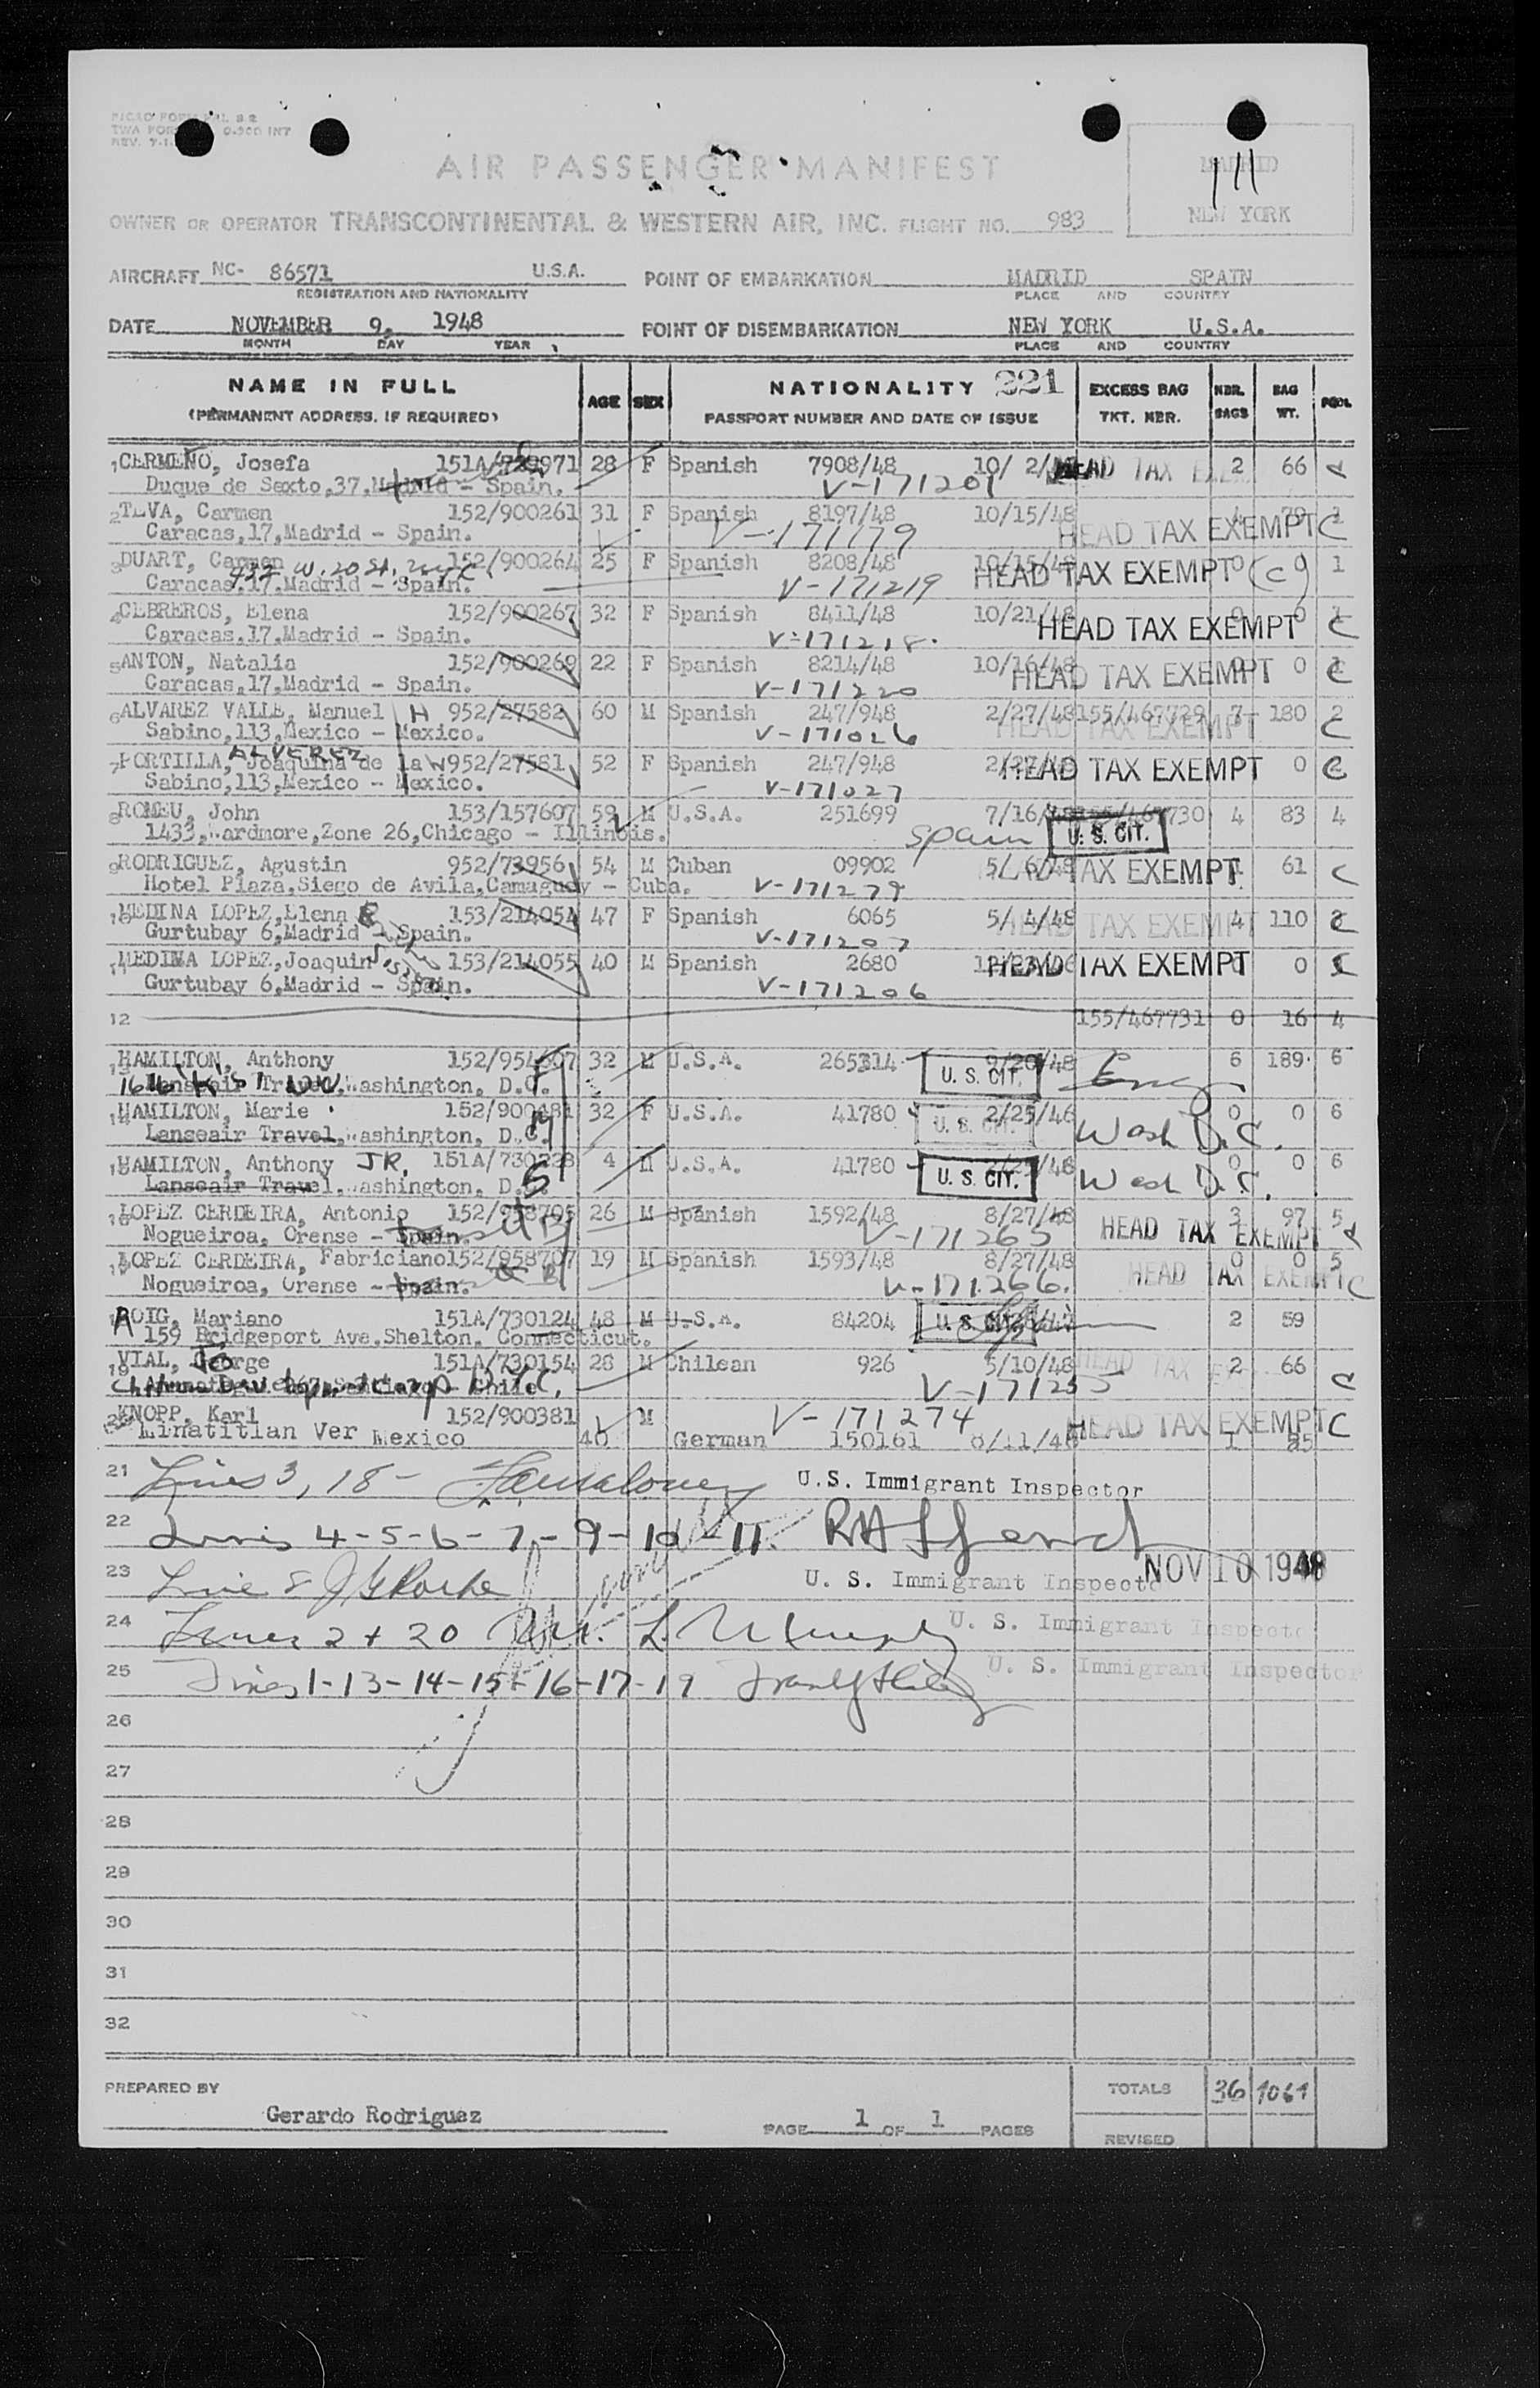 AIR PASSENGER MANIFEST
MADRID
NEW YORK
111
OWNER OR OPERATOR TRANSCONTINENTAL & WESTERN AIR, INC. FLIGHT NO. 983
AIRCRAFT NC- 86571 U.S.A. POINT OF EMBARKATION MADRID SPAIN
REGISTRATION AND NATIONALITY PLACE AND COUNTRY
DATE NOVEMBER 9, 1948 POINT OF DISEMBARKATION NEW YORK U.S.A.
MONTH DAY YEAR PLACE AND COUNTRY
NAME IN FULL AGE SEX NATIONALITY 221 EXCESS BAG NBR. BAG POOL
(PERMANENT ADDRESS, IF REQUIRED) PASSPORT NUMBER AND DATE OF ISSUE TKT. NBR. BAGS WT.
1 CERMEÑO, Josefa 28 F Spanish 7908/48 10/ 2/ HEAD TAX 2 66
Duque de Sexto,37,Madrid - Spain. V-171201
2 Carmen 152/900261 31 F Spanish 8197/48 10/15/48 HEAD TAX EXEMPT C
Caracas,17,Madrid - Spain. V-171179
3 DUART, Carmen 152/900264 25 F Spanish 8208/48 10/15/48 HEAD TAX EXEMPT 0 (C) 1
W. 20 St. NYC
Caracas.17.Madrid - Spain. V-171219
4 CEBREROS, Elena 152/900267 32 F Spanish 8411/48 10/21/48 HEAD TAX EXEMPT 0 0 C
Caracas,17,Madrid - Spain. V-171218.
5 ANTON, Natalia 152/900269 22 F Spanish 8214/48 10/16/48 HEAD TAX EXEMPT 0 C
Caracas,17,Madrid - Spain. V-171220
6 ALVAREZ VALLE, Manuel H 952/27582 60 M Spanish 247/948 2/27/48 155/467729 7 180 2
Sabino,113,Mexico - Mexico. V-171026 HEAD TAX EXEMPT C
ALVEREZ
7 PORTILLA, Joaquina de la W 952/27581 52 F Spanish 247/948 HEAD TAX EXEMPT 0 C
Sabino,113,Mexico - Mexico. V-171027
8 ROMEU, John 153/157607 59 M U.S.A. 251699 7/16/48 155/467730 4 83 4
1433,Wardmore,Zone 26,Chicago - Illinois. Spain U. S. CIT.
9 RODRIGUEZ, Agustin 952/73956 54 M Cuban 09902 5/ 6/48 TAX EXEMPT 61 C
Hotel Plaza,Siego de Avila,Camaguey - Cuba. V-171279
10 MEDINA LOPEZ,Elena 153/214054 47 F Spanish 6065 5/ 4/48 HEAD TAX EXEMPT 4 110
Gurtubay 6,Madrid - Spain. V-171207
11 MEDINA LOPEZ,Joaquin 153/214055 40 M Spanish 2680 HEAD TAX EXEMPT 0
Gurtubay 6,Madrid - Spain. V-171206
12 155/467731 0 16 4
13 HAMILTON, Anthony 32 M U.S.A. 265314 9/20/48 6 189 6
U. S. CIT.
Lanseair Travel,Washington, D.C.
14 HAMILTON, Marie 32 F U.S.A. 41780 2/25/46 0 0 6
Lanseair Travel,Washington, D.C. U. S. CIT. Wash D.C.
15 HAMILTON, Anthony JR. 4 M U.S.A. 41780 0 0 6
Lanseair Travel,Washington, D.C. U. S. CIT. Wash D.C.
16 LOPEZ CERDEIRA, Antonio 152/958705 26 M Spanish 1592/48 8/27/48 3 97 5
Nogueiroa, Orense - Spain. V-171265 HEAD TAX EXEMPT
17 LOPEZ CERDEIRA, Fabriciano 152/958707 19 M Spanish 1593/48 8/27/48 0 0 5
Nogueiroa, Orense - Spain. V-171266. HEAD TAX EXEMPT C
18 ROIG, Mariano 151A/730124 48 M U.S.A. 84204 U. S. CIT. 2 59
159 Bridgeport Ave.Shelton, Connecticut.
19 VIAL, George 151A/730154 28 M Chilean 926 5/10/48 HEAD TAX 2 66
Chile V-171255 C
20 KNOPP, Karl 152/900381 M V-171274 HEAD TAX EXEMPT C
Minatitlan Ver Mexico 40 German 150161 1
21 Lines 3, 18 - U.S. Immigrant Inspector
22 Lines 4-5-6-7-9-10-11.
23 Line 8 U. S. Immigrant Inspector NOV 10 1948
24 Lines 2 + 20 U. S. Immigrant Inspector
25 Lines 1-13-14-15-16-17-19 U. S. Immigrant Inspector
26
27
28
29
30
31
32
PREPARED BY TOTALS 36 1061
Gerardo Rodriguez PAGE 1 OF 1 PAGES
REVISED